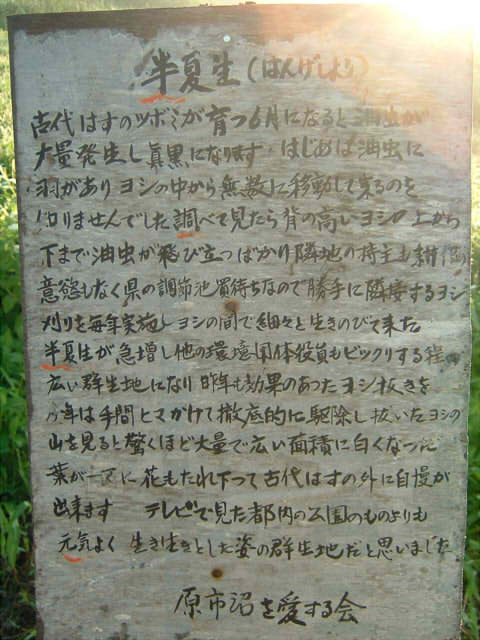 半夏生(はんげしょう)
古代はすのツボミが育つ6月になると油虫が
大量発生し真黒になります。はじめは油虫に
羽がありヨシの中から無数に移動して来るのを
知りませんでした調べて見たら背の高いヨシの上から
下まで油虫が飛び立つばかり隣地の持主も耕作
意慾もなく県の調節池買待ちなので勝手に隣接するヨシ
刈りを毎年実施しヨシの間で細々と生きのびて来た
半夏生が急増し他の環境団体役員もビックリする程
広い群生地になり昨年も効果のあったヨシ抜きを
今年は手間ヒマかけて徹底的に駆除し抜いたヨシの
山を見ると驚くほど大量で広い面積に白くなった
葉が一斉に花もたれ下って古代はすの外に自慢が
出来ます テレビで見た都内の公園のものよりも
元気よく生き生きとした姿の群生地だと思いました
原市沼を愛する会